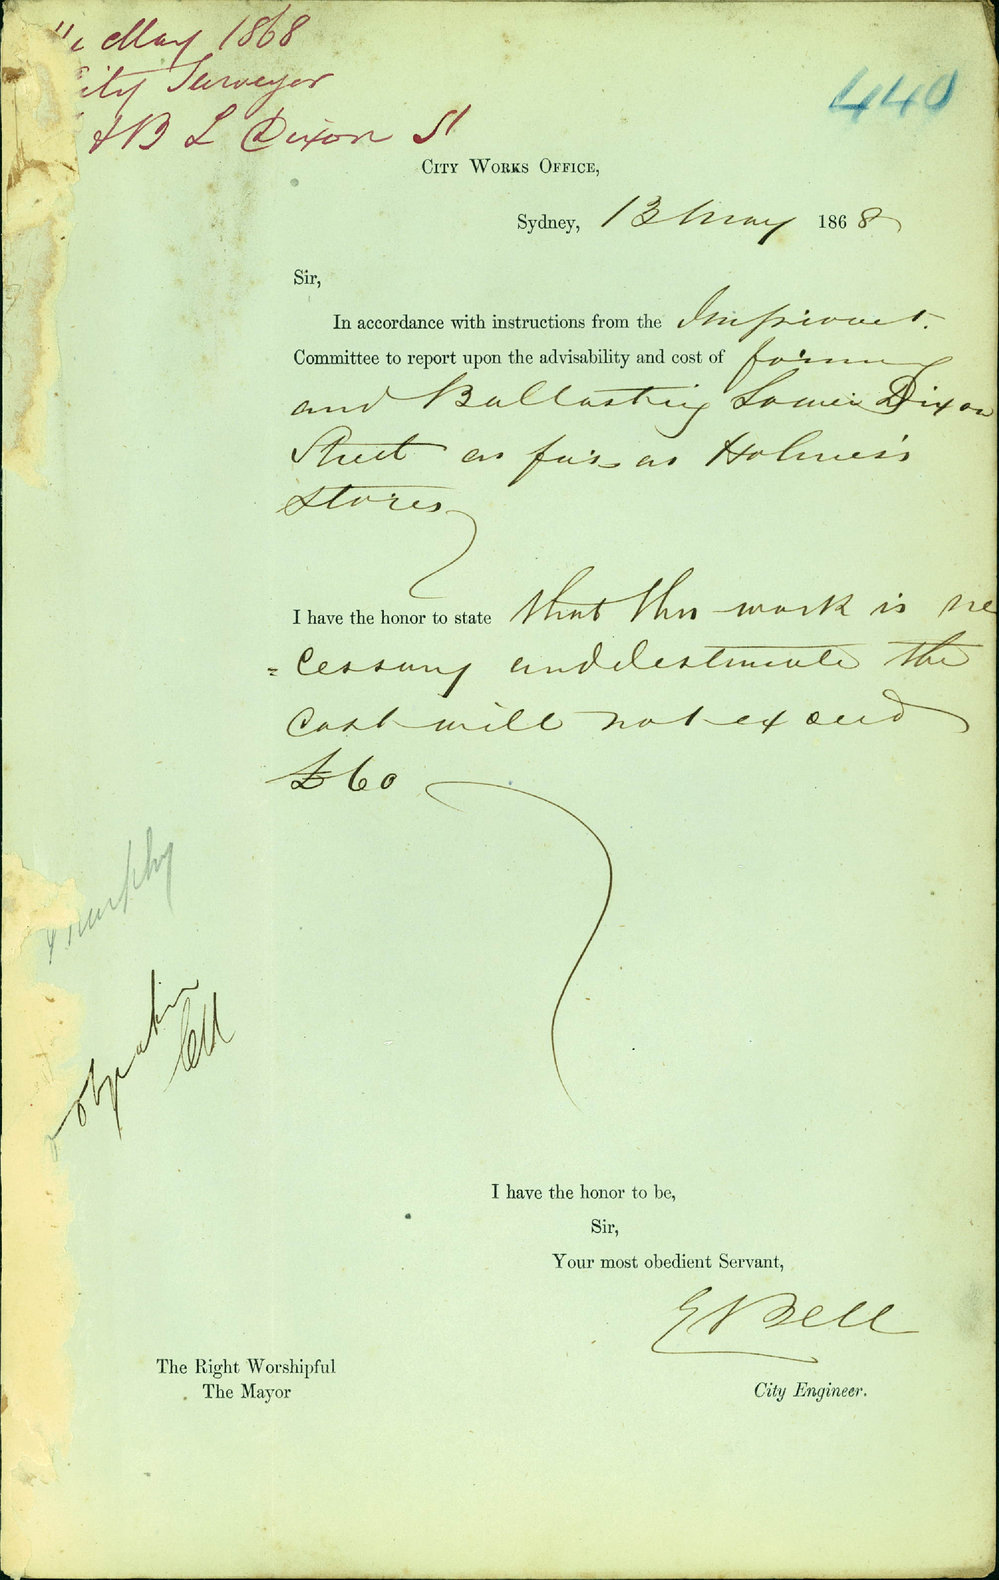 May 1868
City Surveyor
& B L Dixon St
440
City Works Office,
Sydney, 13 May 1868
Sir,
In accordance with instructions from the Improvet.
Committee to report upon the advisability and cost of forming
and Ballasting Lower Dixon
Street as far as Holmes's
Stores
I have the honor to state that this work is ne
=cessary and estimate the
cost will not exceed
£60
Murphy
I have the honor to be,
Sir,
Your most obedient Servant,
E Bell
The Right Worshipful
The Mayor
City Engineer.